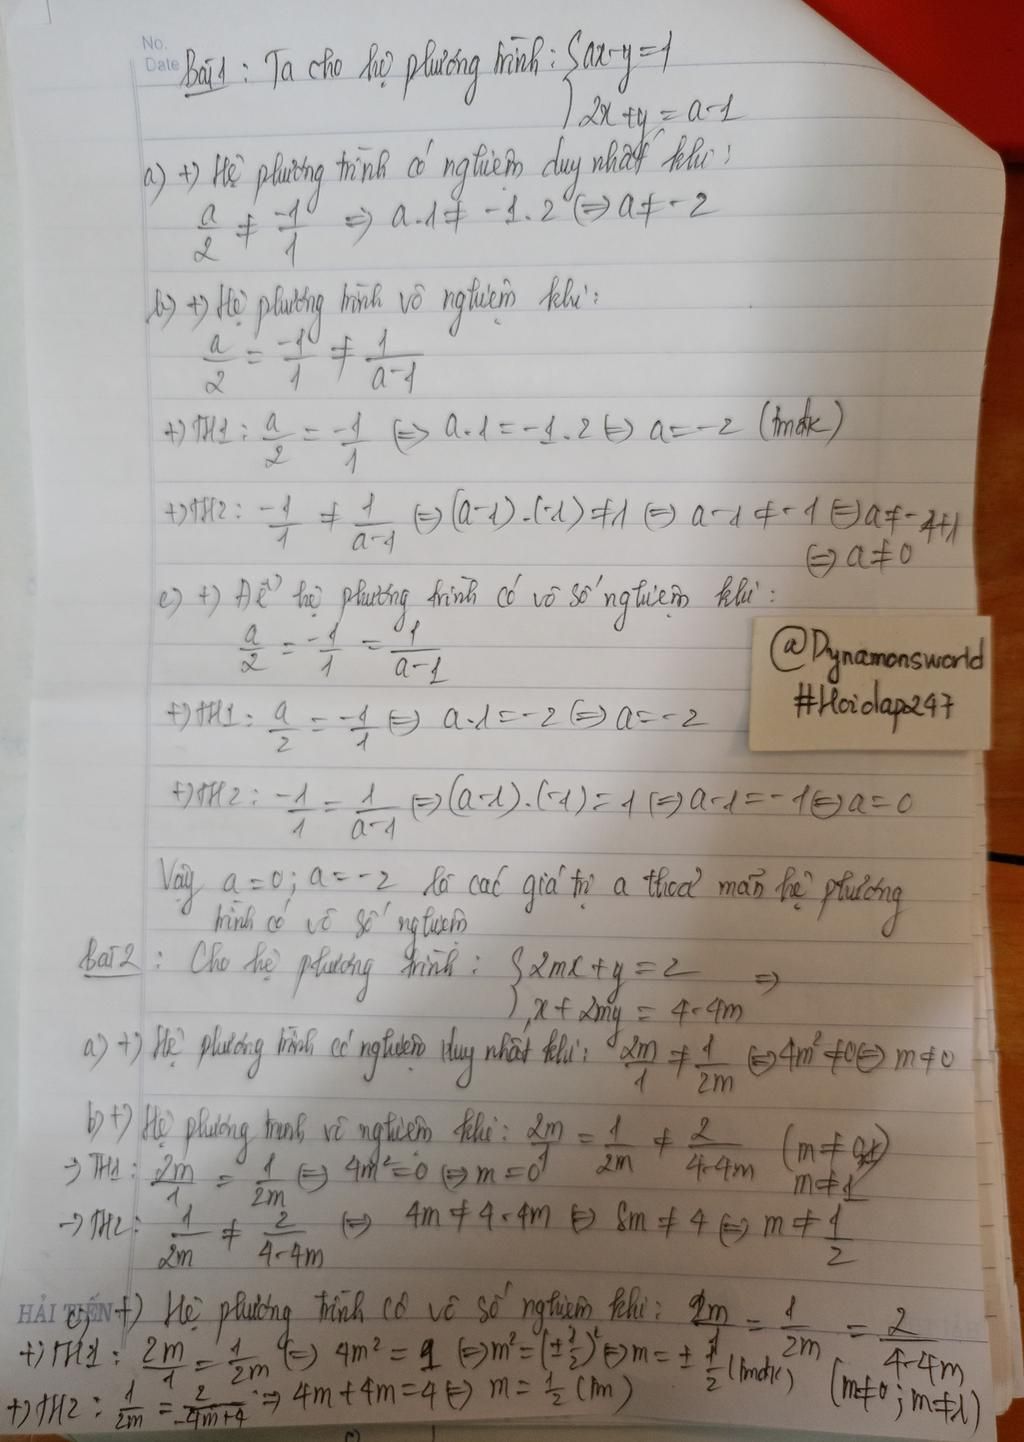 No.
Date
Bài 1 : Ta cho hệ phương trình : { ax-y=1
2x+y = a-1
a) +) Hệ phương trình có nghiệm duy nhất khi :
a/2 ≠ -1/1 => a.1 ≠ -1.2 <=> a ≠ -2
b) +) Hệ phương trình vô nghiệm khi :
a/2 = -1/1 ≠ 1/(a-1)
+) TH1 : a/2 = -1/1 <=> a.1 = -1.2 <=> a = -2 (tmđk)
+) TH2 : -1/1 ≠ 1/(a-1) <=> (a-1).(-1) ≠ 1 <=> a-1 ≠ -1 <=> a ≠ -1+1
<=> a ≠ 0
c) +) Để hệ phương trình có vô số nghiệm khi :
a/2 = -1/1 = 1/(a-1)
@Dynamonsworld
#Hoidap247
+) TH1 : a/2 = -1/1 <=> a.1 = -2 <=> a = -2
+) TH2 : -1/1 = 1/(a-1) <=> (a-1).(-1) = 1 <=> a-1 = -1 <=> a = 0
Vậy a = 0 ; a = -2 là các giá trị a thoả mãn hệ phương
trình có vô số nghiệm
Bài 2 : Cho hệ phương trình : { 2mx + y = 2 =>
x + 2my = 4-4m
a) +) Hệ phương trình có nghiệm duy nhất khi : 2m/1 ≠ 1/2m <=> 4m² ≠ 0 <=> m ≠ 0
b) +) Hệ phương trình vô nghiệm khi : 2m/1 = 1/2m ≠ 2/(4-4m) (m ≠
m ≠ 1
-> TH1 : 2m/1 = 1/2m <=> 4m² = 0 <=> m = 0
-> TH2 : 1/2m ≠ 2/(4-4m) <=> 4m ≠ 4-4m <=> 8m ≠ 4 <=> m ≠ 1/2
HẢI TIẾN
c) +) Hệ phương trình có vô số nghiệm khi : 2m/1 = 1/2m = 2/(4-4m)
+) TH1 : 2m/1 = 1/2m <=> 4m² = 1 <=> m² = (±1/2)² <=> m = ±1/2 (tmđk) (m≠0 ; m≠1)
+) TH2 : 1/2m = 2/(-4m+4) => 4m+4m = 4 <=> m = 1/2 (tm)